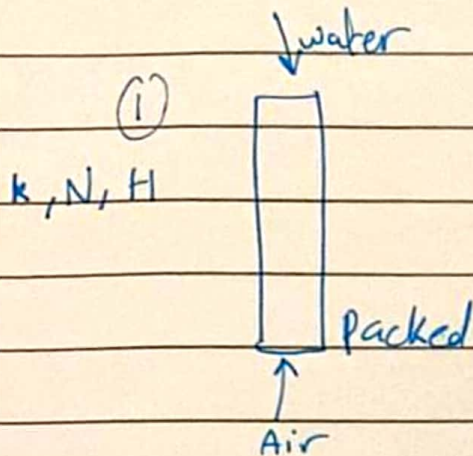 water
①
k, N, H
Packed
Air